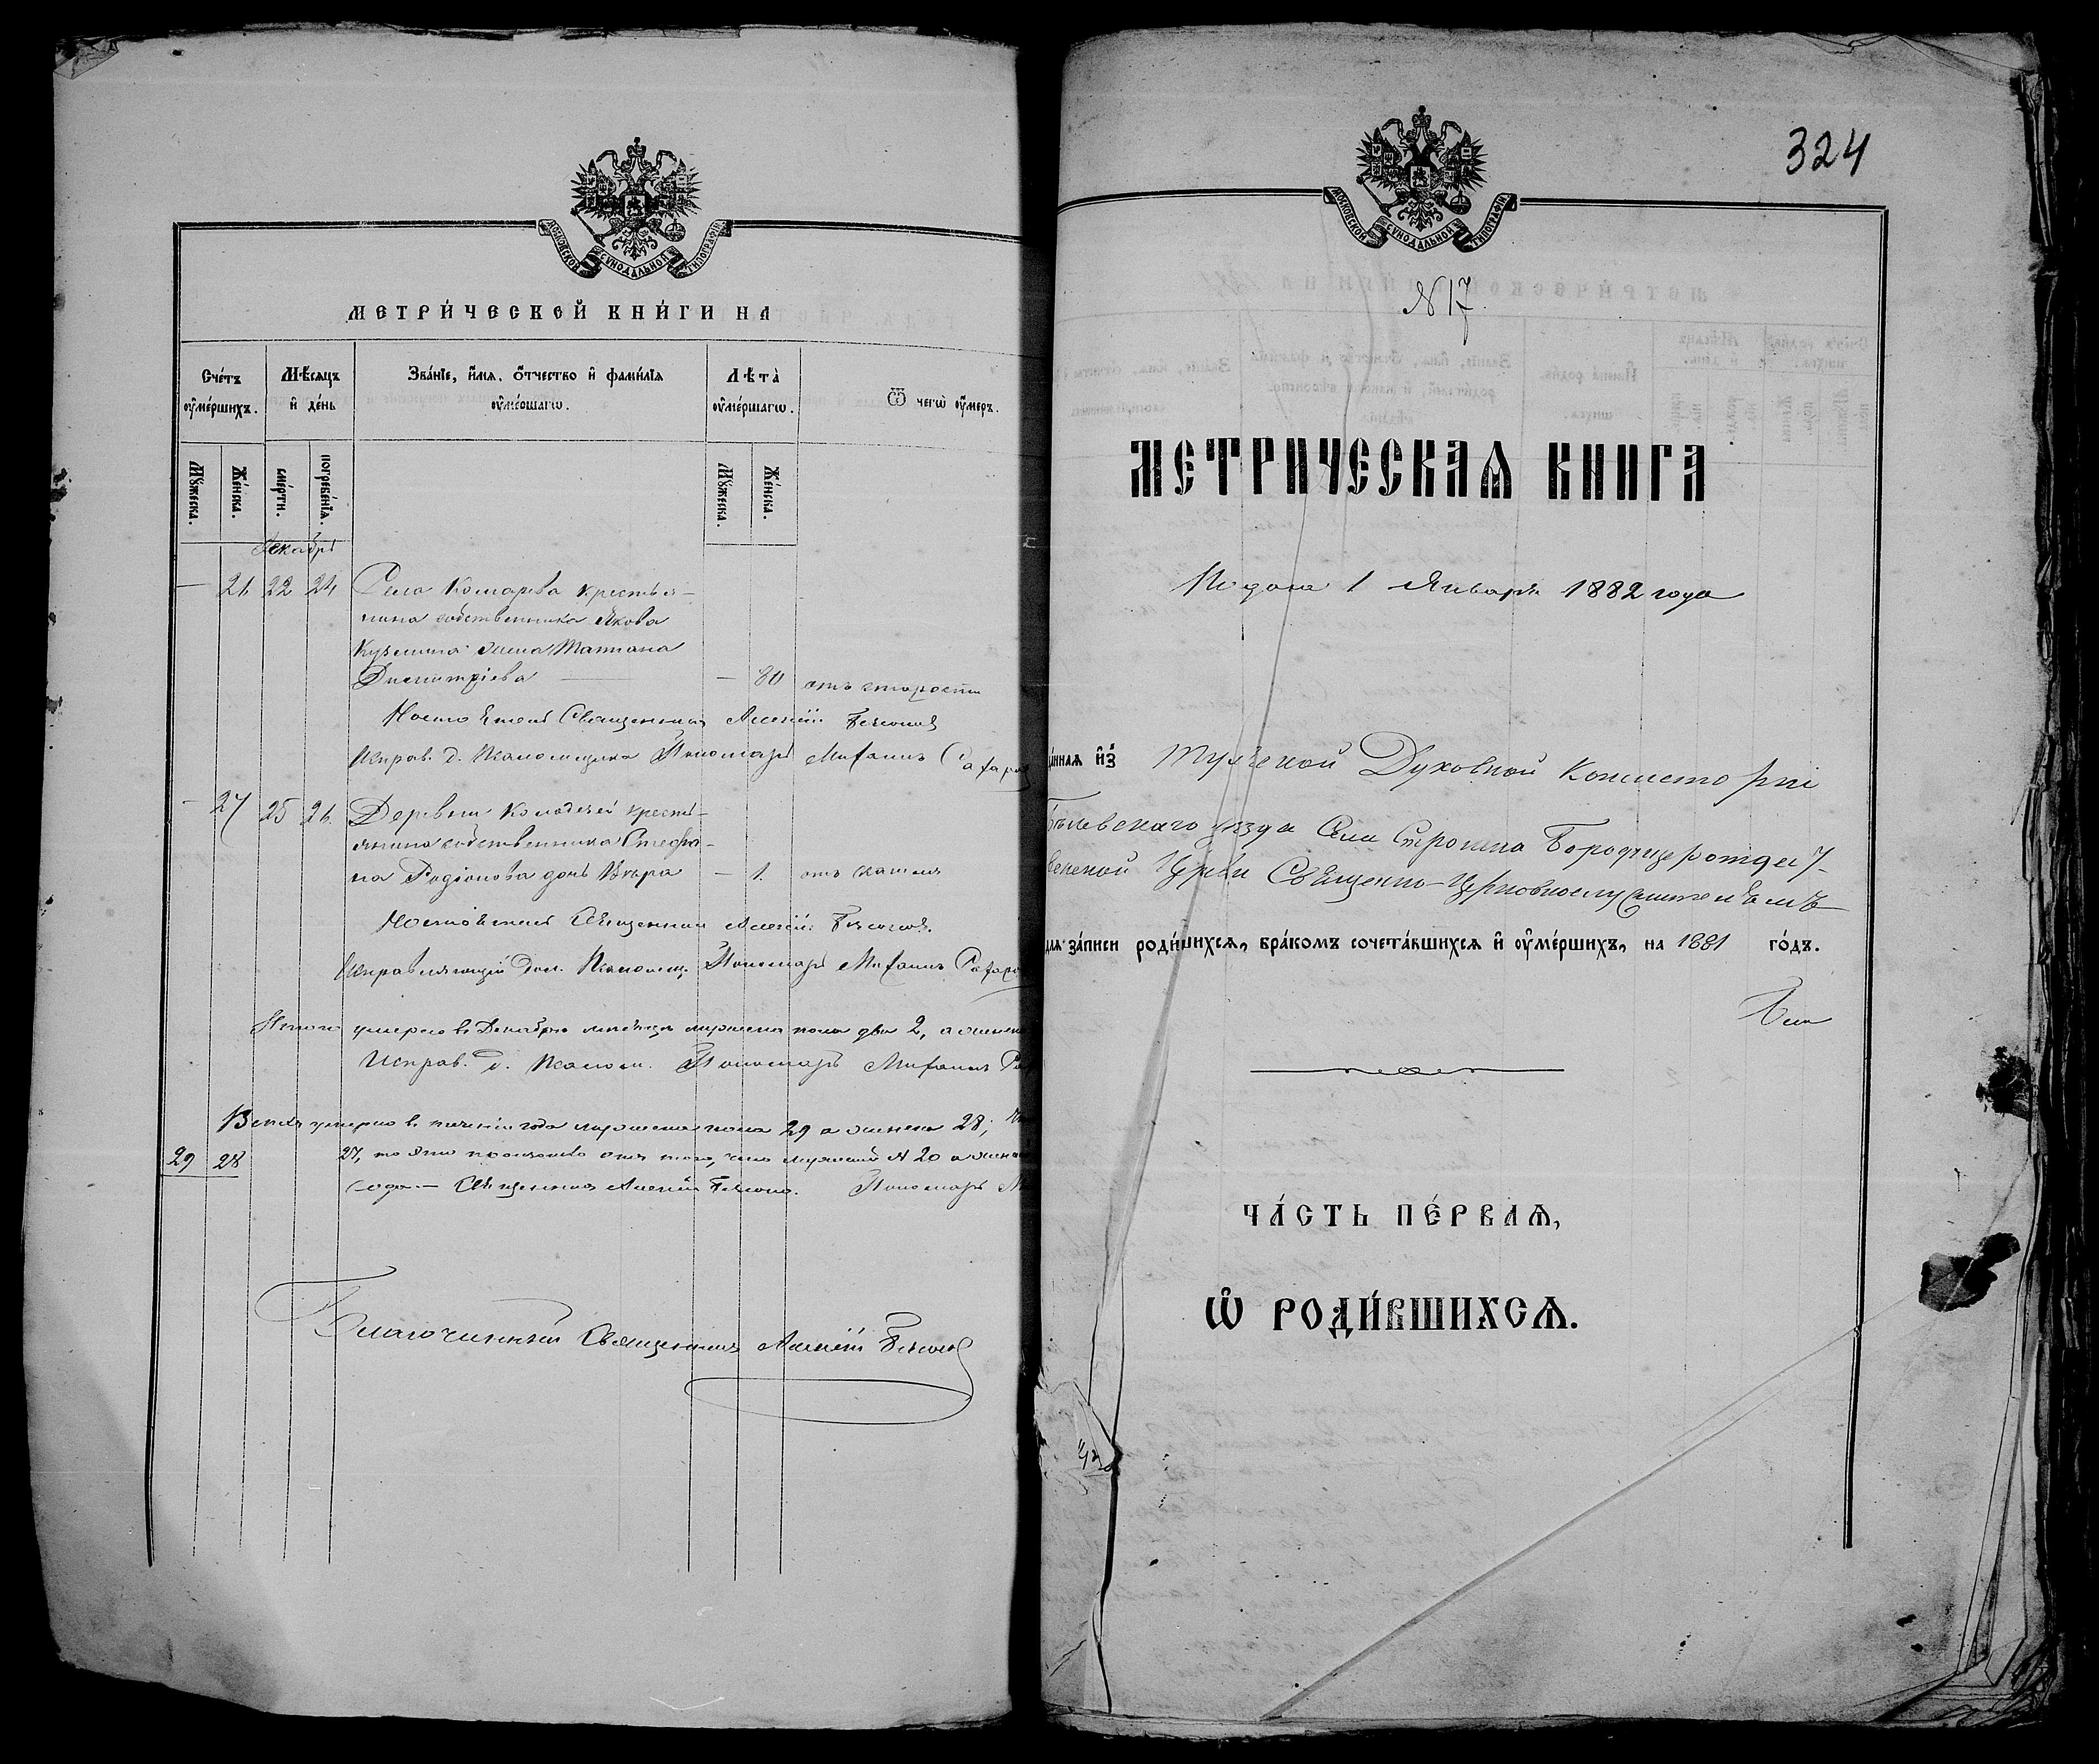 МОСКОВСКОЙ СУНОДАЛЬНОЙ ТИПОГРАФІИ
МЕТРИ́ЧЕСКОЙ КНИ́ГИ НА
Сче́тъ ᲂу҆ме́ршихъ.
Мѣ́сяцъ и҆ де́нь
Зва́нїе, и҆́мѧ, ѻ҆́тчество и҆ фами́лїѧ ᲂу҆ме́ршагѡ.
Лѣ́та ᲂу҆ме́ршагѡ.
Ѿ чегѡ̀ ᲂу҆́меръ.
Мꙋ́жеска.
Же́нска.
сме́рти.
погребе́нїѧ.
Мꙋ́жеска.
Же́нска.
Декабрь
— 26 22 24 Села Комарева крестья-
нина собственника Якова
Кузмина жена Татиана
Димитріева — — 80 отъ старости
Настоятель Священникъ Алексій
Исправ. д. Псаломщика Пономарь
— 27 25 26. Деревни Колодезей кресть-
янина собственника Стефа-
на Родіонова дочь — 1. отъ кашля
Настоятель Священникъ Алексій
Исправляющій дол. Псаломщ. Пономарь
Итого умерло въ Декабрѣ мѣсяцѣ мужеска пола два 2, а женска
Исправ. д. Псалом. Пономарь
Всего умерло въ теченіи года мужеска пола 29 а женска 28;
29 28 27, то это произошло отъ того, что мужескій № 20 а
Священникъ Алексій Пономарь
Благочинный Священникъ Алексій
324
МОСКОВСКОЙ СУНОДАЛЬНОЙ ТИПОГРАФІИ
№ 17.
МЕТРИЧЕСКАѦ КНИГА
Подана 1 Января 1882 года
да́ннаѧ и҆з̾ Тульской Духовной Консисторіи
Бѣлевскаго уѣзда Села Строина Богородицерождест-
венской Церкви Священно-Церковнослужителямъ
для за́писи роди́вшихсѧ, бра́комъ сочета́вшихсѧ и҆ ᲂу҆ме́ршихъ, на 1881 го́дъ.
ЧА́СТЬ ПЕ́РВАѦ,
Ѡ҆ РОДИ́ВШИХСѦ.